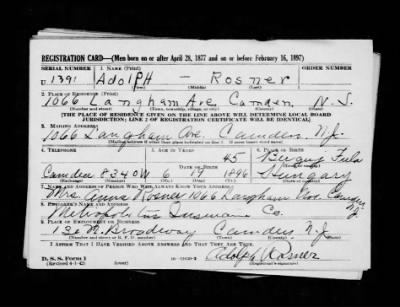 REGISTRATION CARD—(Men born on or after April 28, 1877 and on or before February 16, 1897)
SERIAL NUMBER 1. NAME (Print) ORDER NUMBER
U 1391 ADOLPH - ROSNER
(First) (Middle) (Last)
2. PLACE OF RESIDENCE (Print)
1066 Langham Ave Camden N.J.
(Number and street) (Town, township, village, or city) (County) (State)
[THE PLACE OF RESIDENCE GIVEN ON THE LINE ABOVE WILL DETERMINE LOCAL BOARD
JURISDICTION; LINE 2 OF REGISTRATION CERTIFICATE WILL BE IDENTICAL]
3. MAILING ADDRESS
1066 Langham Ave. Camden N.J.
4. TELEPHONE
45
Camden 8340W 6 19 1896 Hungary
(Exchange) (Number) (Mo.) (Day) (Yr.)
7. NAME AND ADDRESS OF PERSON WHO WILL ALWAYS KNOW YOUR ADDRESS
Mrs. Anna Rosner 1066 Langham Ave Camden N.J.
8. EMPLOYER'S NAME AND ADDRESS
Metropolitan Insurance Co.
9. PLACE OF EMPLOYMENT OR BUSINESS
130 N. Broadway Camden N.J.
(Number and street or R. F. D. number) (Town) (County) (State)
I AFFIRM THAT I HAVE VERIFIED ABOVE ANSWERS AND THAT THEY ARE TRUE.
D. S. S. Form 1
(Revised 4-1-42)
Adolph Rosner